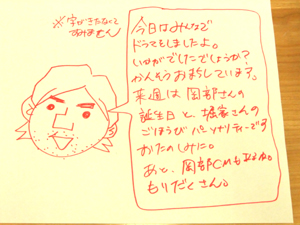 ※字がきたなくて
すみません
今日はみんなで
ドラマをしましたよ。
いかがでしたでしょうか?
かんそうおまちしています。
来週は岡部さんの
誕生日と、堀宮さんの
ごほうびパーソナリティーです
おたのしみに。
あと、岡部CMも
もりだくさん。